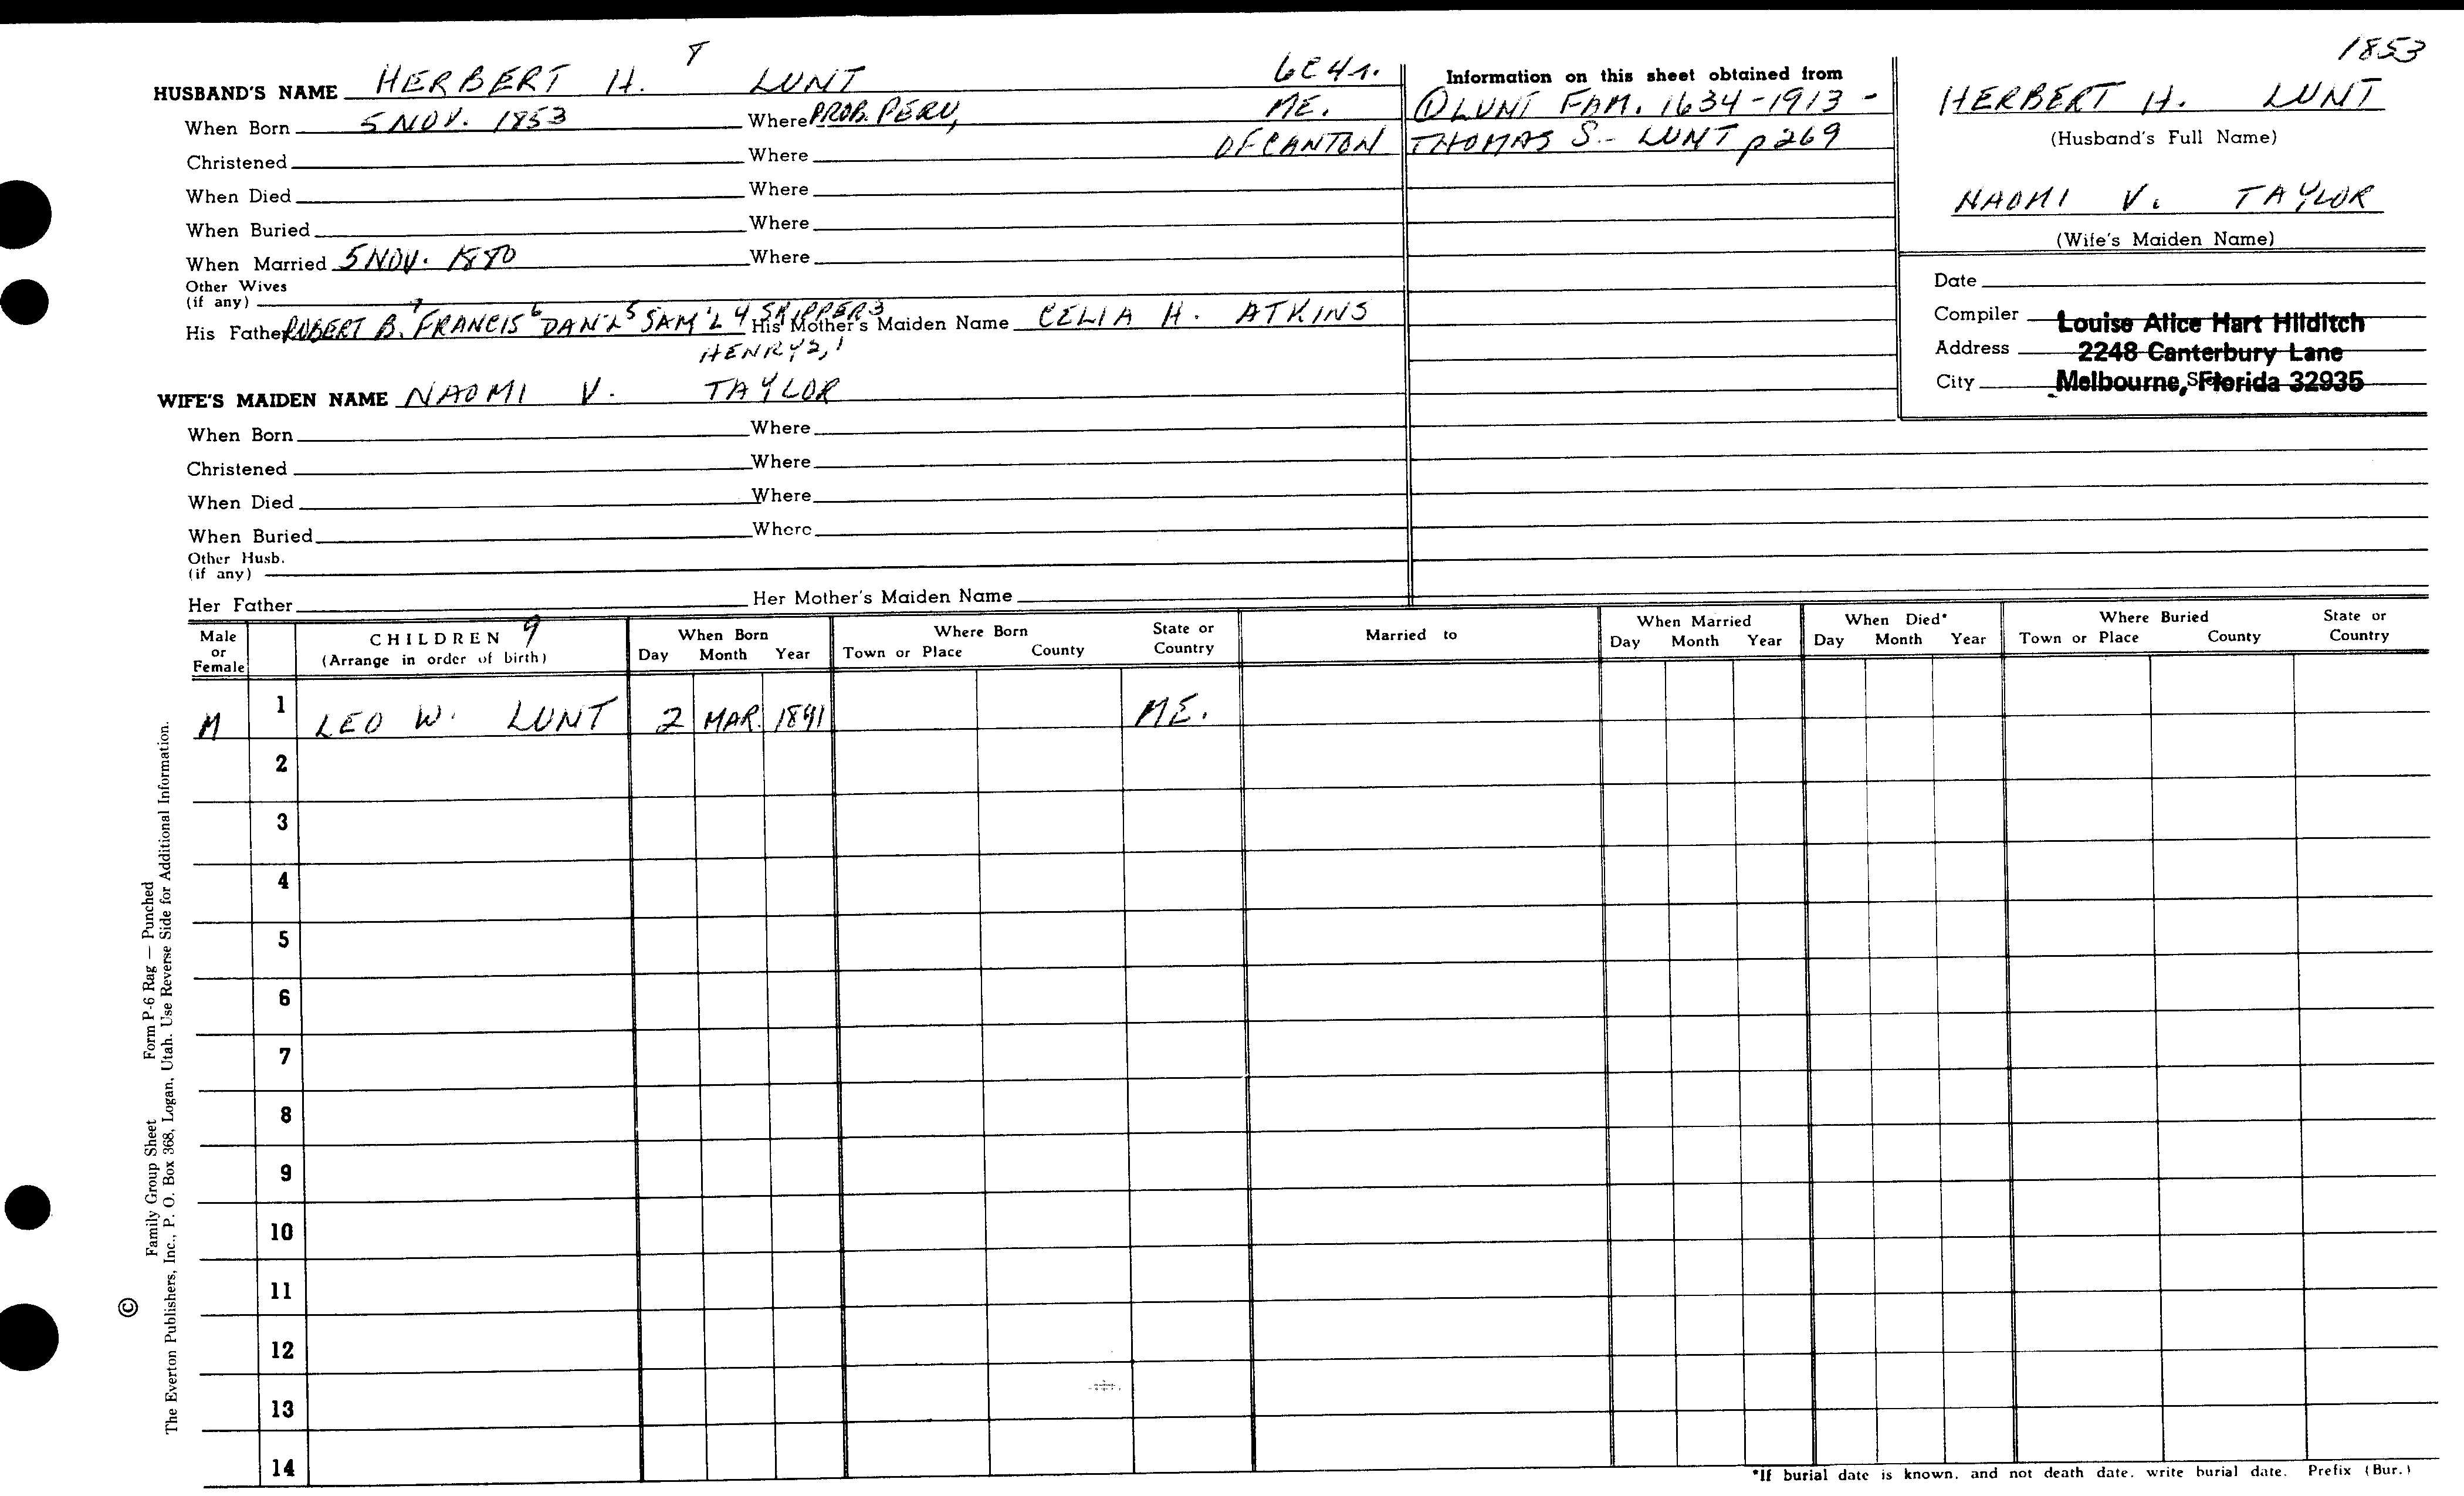 1853
HUSBAND'S NAME HERBERT H. LUNT
When Born 5 NOV. 1853 Where PROB. PERU, ME.
Christened Where OF CANTON
When Died Where
When Buried Where
When Married 5 NOV. 1880 Where
Other Wives
(if any)
His Father ROBERT B.7 FRANCIS6 DAN'L5 SAM'L4 SKIPPER3 His Mother's Maiden Name CELIA H. ATKINS
HENRY2,1
WIFE'S MAIDEN NAME NAOMI V. TAYLOR
When Born Where
Christened Where
When Died Where
When Buried Where
Other Husb.
(if any)
Her Father Her Mother's Maiden Name
Information on this sheet obtained from
① LUNT FAM. 1634-1913 -
THOMAS S. - LUNT p269
HERBERT H. LUNT
(Husband's Full Name)
NAOMI V. TAYLOR
(Wife's Maiden Name)
Date
Compiler Louise Alice Hart Hilditch
Address 2248 Canterbury Lane
City Melbourne, Florida 32935
Male or Female CHILDREN 9 (Arrange in order of birth) When Born Day Month Year Where Born Town or Place County State or Country Married to When Married Day Month Year When Died* Day Month Year Where Buried Town or Place County State or Country
M 1 LEO W. LUNT 2 MAR. 1891 ME.
2
3
4
5
6
7
8
9
10
11
12
13
14
*If burial date is known, and not death date, write burial date. Prefix (Bur.)
© Family Group Sheet Form P-6 Rag — Punched
The Everton Publishers, Inc., P. O. Box 368, Logan, Utah. Use Reverse Side for Additional Information.